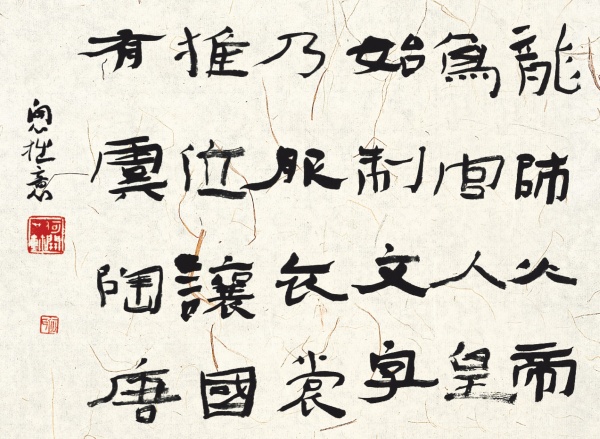 龍師火帝
鳥官人皇
始制文字
乃服衣裳
推位讓國
有虞陶唐